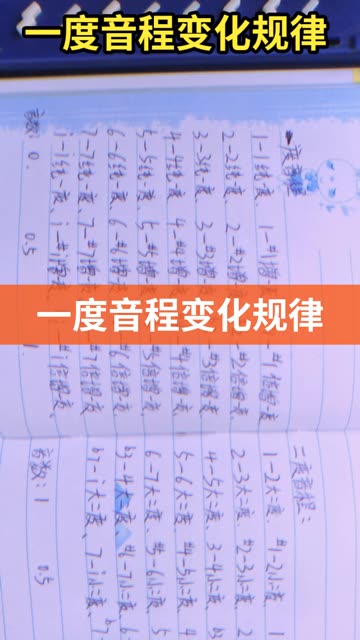 一度音程变化规律
一度音程变化规律
一度音程
1-1纯一度、1-#1增
#1倍增一度、
2-2纯一度、2-#2增
#2倍增一度、
3-3纯一度、3-#3增
#3倍增一度、
4-4纯一度、4-#4增
#4倍增一度、
5-5纯一度、5-#5增
#5倍增一度、
6-6纯一度、6-#6增
#6倍增一度、
7-7纯一度、7-#7增
#7倍增一度、
i-i纯一度、i-#i增
#i倍增一度、
音数：0. 0.5
二度音程：
1-2大二度、#1-2小二度、
2-3大二度、#2-3小二度、
4-5大二度、3-4小二度、
5-6大二度、#4-5小二度、
6-7大二度、#5-6小二度、
b3-4大二度、#6-7小二度、
b7-i大二度、7-i小二度、
音数：1 0.5